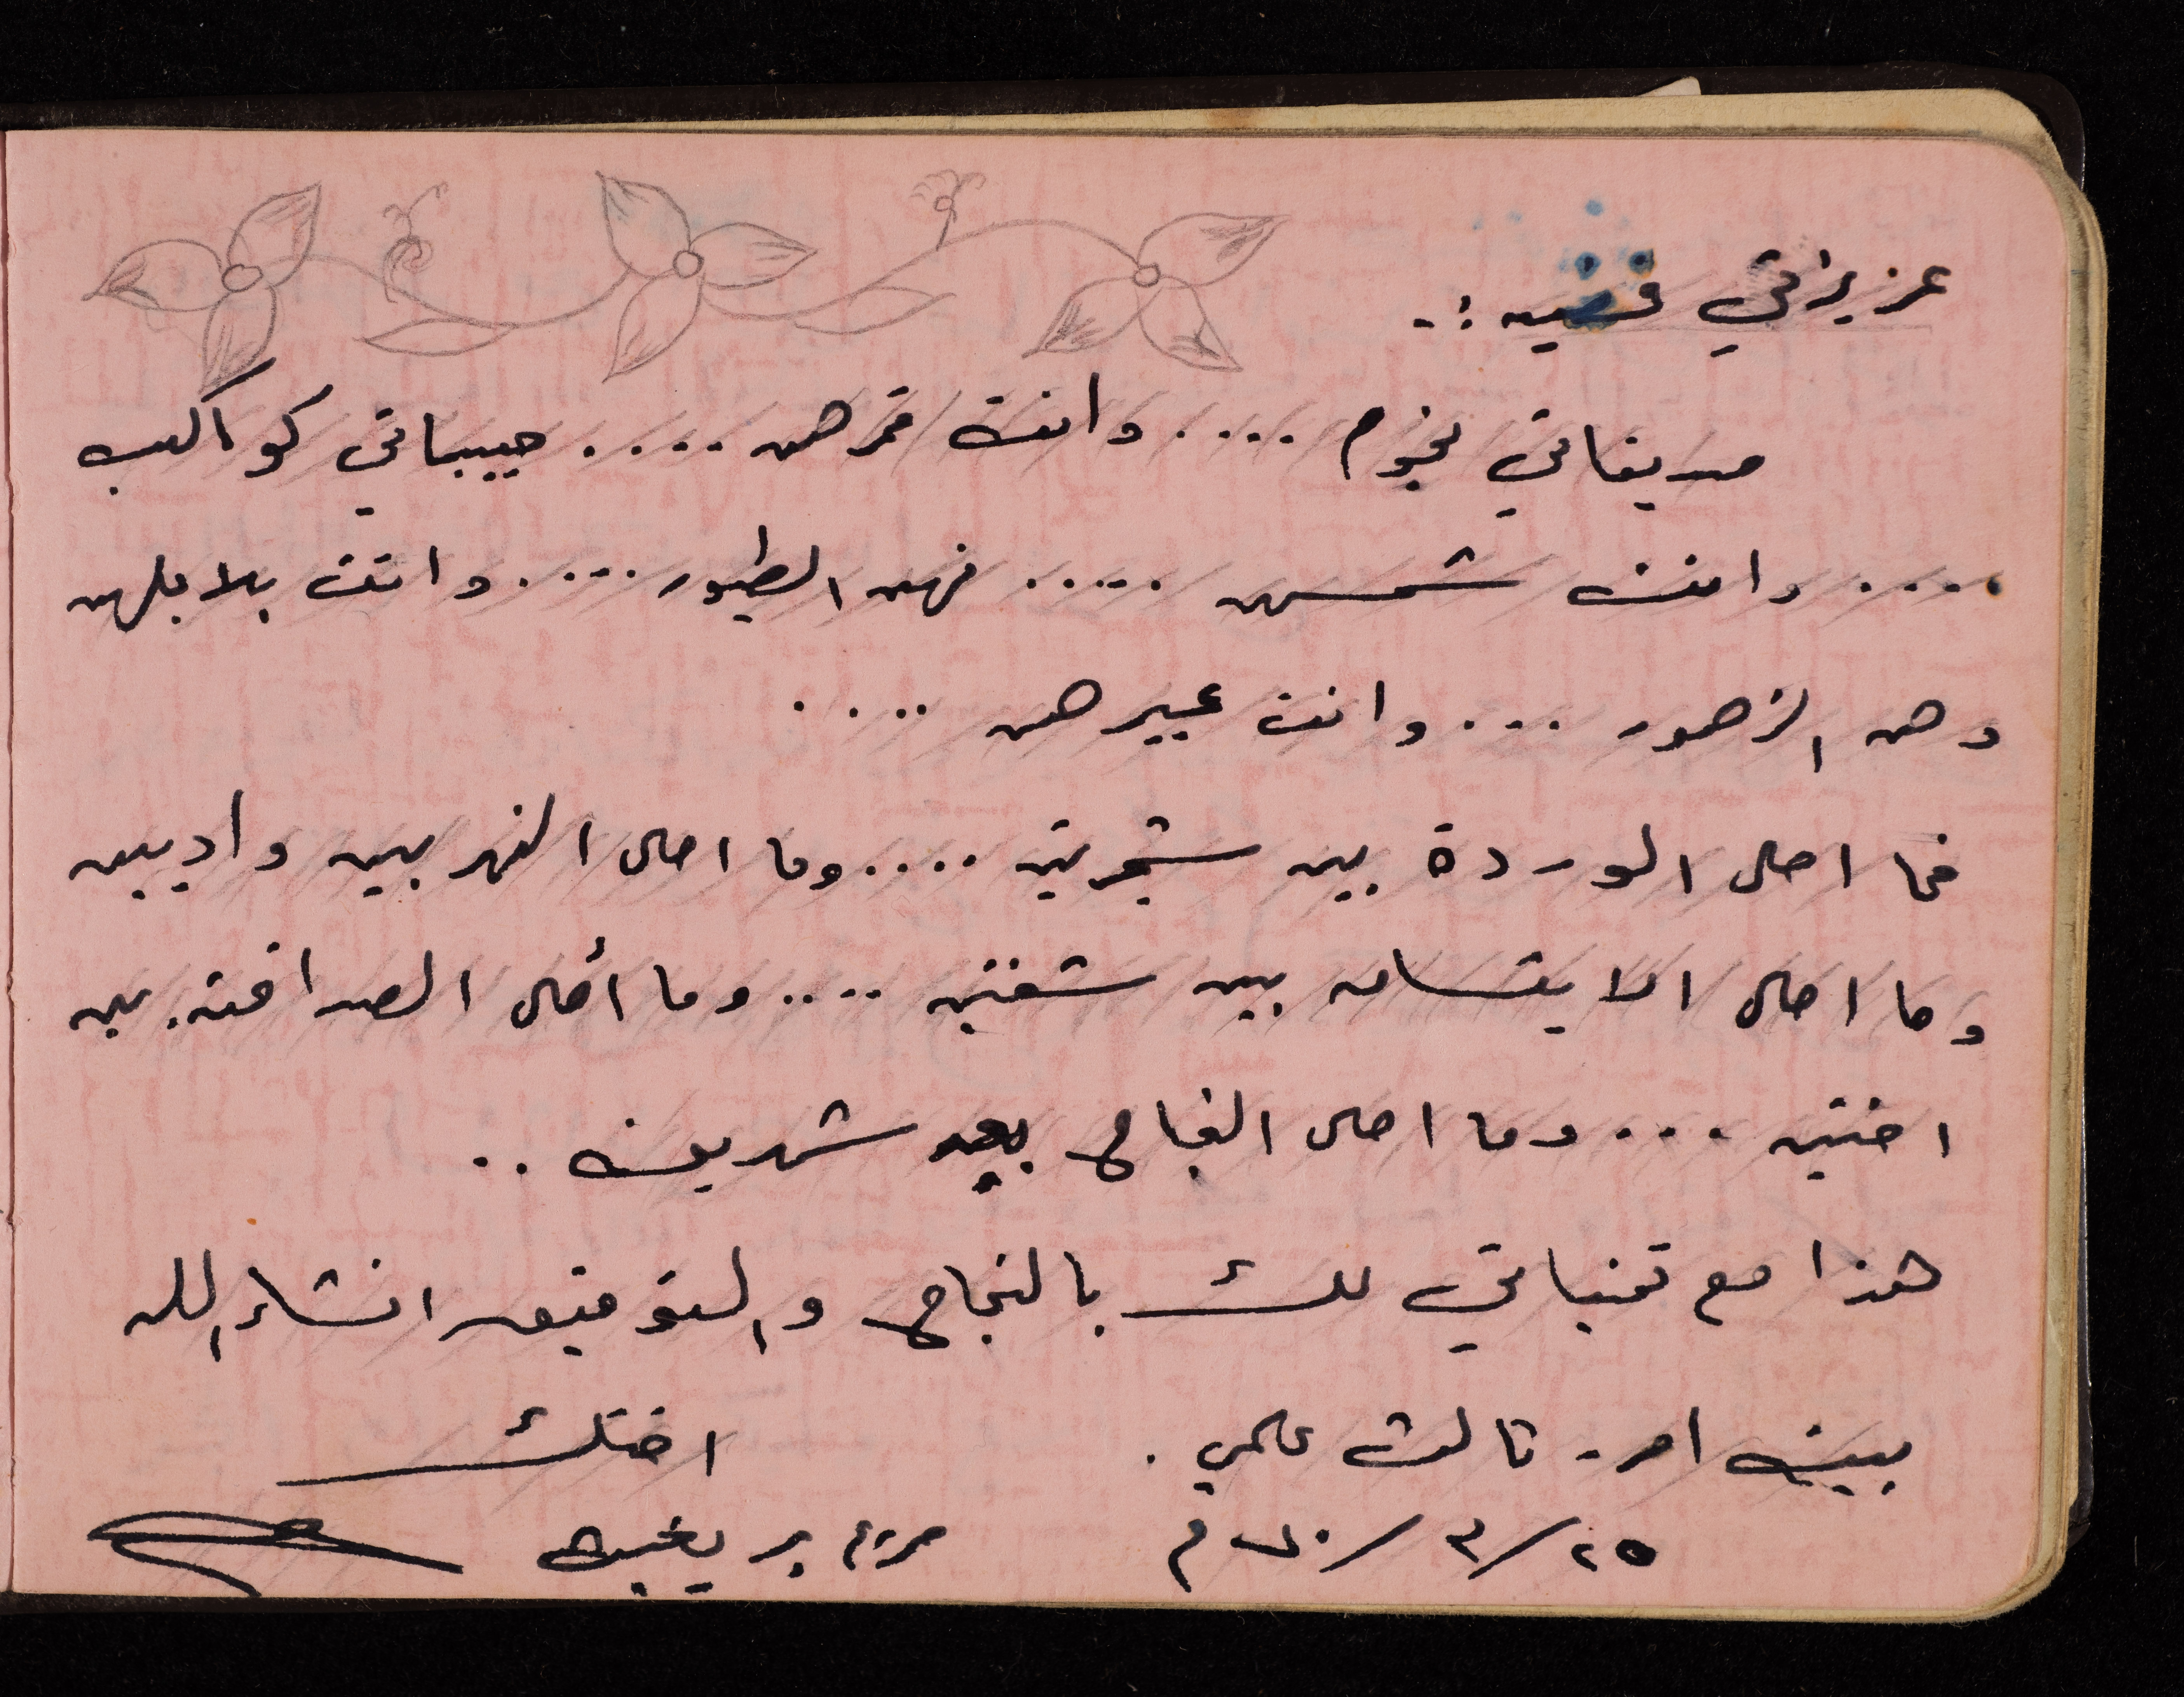 عزيزتي :-
صديقاتي نجوم .... وانت قمرهن .... حبيباتي كواكب
.... وانت شمسهن ..... فهن الطيور .... وانت بلابلهن
وهن الزهور ... وانت عبيرهن ....
فما احلى الوردة بين شجرتين .... وما احلى النهر بين واديين
وما احلى الابتسامه بين شفتين .... وما أحلى الصداقة بين
اختين ... وما احلى النجاح بعد شهرين ..
هذا مع تمنياتي لك بالنجاح والتوفيق انشاء الله
بيت امر - ثالث علمي . اختك
٢٥/٣/ م مريم بريغيث